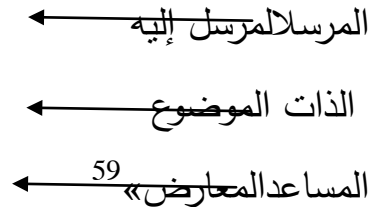 المرسلالمرسل إليه
الذات الموضوع
المساعدالمعارض»59